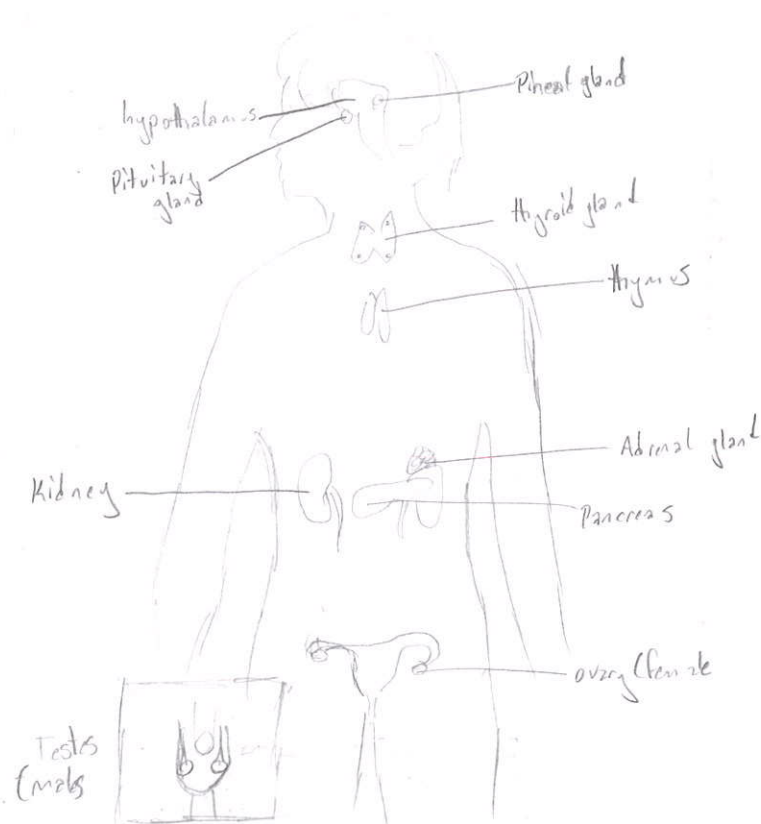 Pineal gland
hypothalamus
Pituitary
gland
thyroid gland
thymus
Adrenal gland
Kidney
Pancreas
ovary (female
Testes
(males